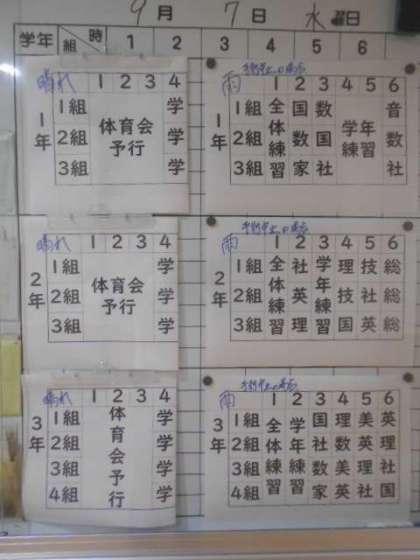 9月 7日 水曜日
学年 組 時 1 2 3 4 5 6
晴れ 1 2 3 4
1年 1組 体育会予行 学
2組 学
3組 学
雨 予行中止の場合 1 2 3 4 5 6
1年 1組 全体練習 国 数 学年練習 音
2組 数 国 数
3組 家 社 社
晴れ 1 2 3 4
2年 1組 体育会予行 学
2組 学
3組 学
雨 予行中止の場合 1 2 3 4 5 6
2年 1組 全体練習 社 学年練習 理 技 総
2組 英 技 社 総
3組 理 国 英 総
晴れ 1 2 3 4
3年 1組 体育会予行 学
2組 学
3組 学
4組 学
雨 予行中止の場合 1 2 3 4 5 6
3年 1組 全体練習 学年練習 国 理 美 英
2組 社 数 英 理
3組 数 美 理 社
4組 家 英 社 国